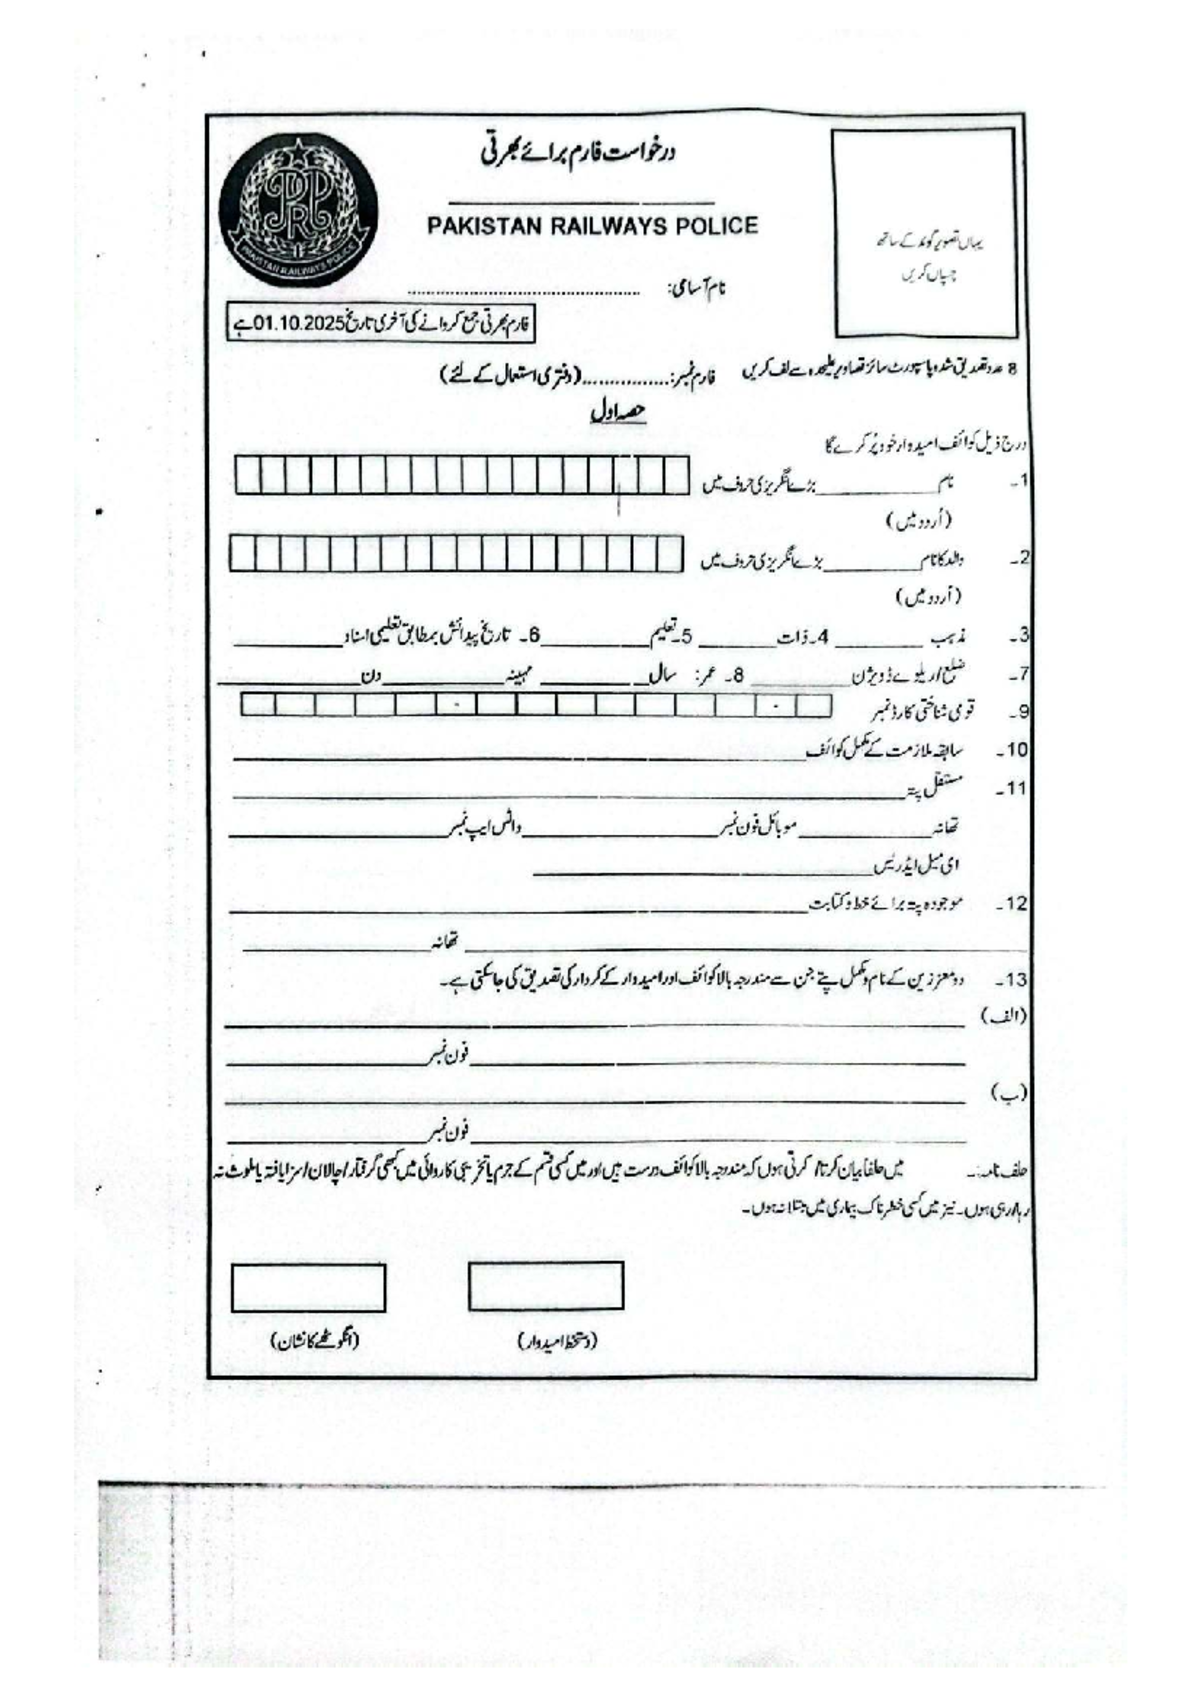 درخواست فارم برائے بھرتی
PAKISTAN RAILWAYS POLICE
PRP
PAKISTAN RAILWAYS POLICE
یہاں تصویر گوند کے ساتھ
چسپاں کریں
نام آسامی: ........................................
فارم بھرتی جمع کروانے کی آخری تاریخ 01.10.2025 ہے
8 عدد تصدیق شدہ پاسپورٹ سائز تصاویر علیحدہ سے لف کریں
فارم نمبر: ...............(دفتری استعمال کے لئے)
حصہ اول
درج ذیل کوائف امیدوار خود پُر کرے گا
1۔ نام ____________ بڑے انگریزی حروف میں
(اُردو میں)
2۔ والد کا نام __________ بڑے انگریزی حروف میں
(اُردو میں)
3۔ مذہب __________ 4۔ ذات ________ 5۔ تعلیم ____________ 6۔ تاریخ پیدائش بمطابق تعلیمی اسناد ____________
7۔ ضلع/ریلوے ڈویژن __________ 8۔ عمر: سال ____________ مہینہ ______________ دن ________________
9۔ قومی شناختی کارڈ نمبر - -
10۔ سابقہ ملازمت کے مکمل کوائف ____________________
11۔ مستقل پتہ ____________________
تھانہ ______________ موبائل فون نمبر ____________________ واٹس ایپ نمبر ____________________
ای میل ایڈریس ____________________
12۔ موجودہ پتہ برائے خط و کتابت ____________________
____________________ تھانہ ____________________
13۔ دو معززین کے نام و مکمل پتے جن سے مندرجہ بالا کوائف اور امیدوار کے کردار کی تصدیق کی جا سکتی ہے۔
(الف) ____________________
____________________ فون نمبر ____________________
(ب) ____________________
____________________ فون نمبر ____________________
حلف نامہ:۔ میں حلفاً بیان کرتا/ کرتی ہوں کہ مندرجہ بالا کوائف درست ہیں اور میں کسی قسم کے جرم یا تخریبی کاروائی میں کبھی گرفتار/چالان/سزا یافتہ یا ملوث نہ
رہا/رہی ہوں۔ نیز میں کسی خطرناک بیماری میں مبتلا نہ ہوں۔
(دستخط امیدوار)
(انگوٹھے کا نشان)